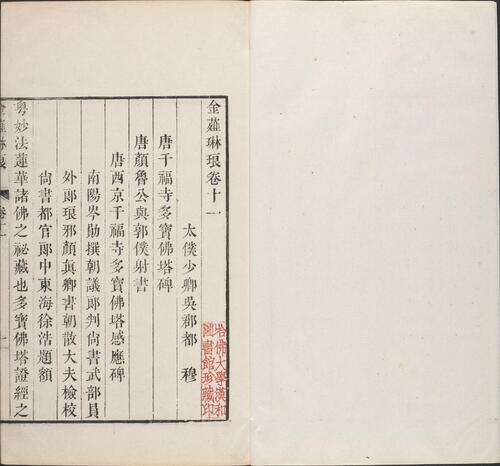 金薤琳琅卷十一
太僕少卿吳郡都 穆
唐千福寺多寶佛塔碑
唐顏魯公與郭僕射書
唐西京千福寺多寶佛塔感應碑
南陽岑勛撰朝議郎判尚書武部員
外郎琅邪顏真卿書朝散大夫檢校
尚書都官郎中東海徐浩題額
粵妙法蓮華諸佛之祕藏也多寶佛塔證經之
金薤琳琅
卷十一
一
哈佛大學漢和
圖書館珍藏印